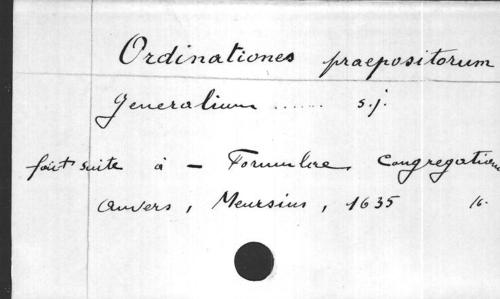 Ordinationes praepositorum
Generalium ...... s.j.
fait suite à - Formulae Congregation
Anvers, Meursius, 1635 16.